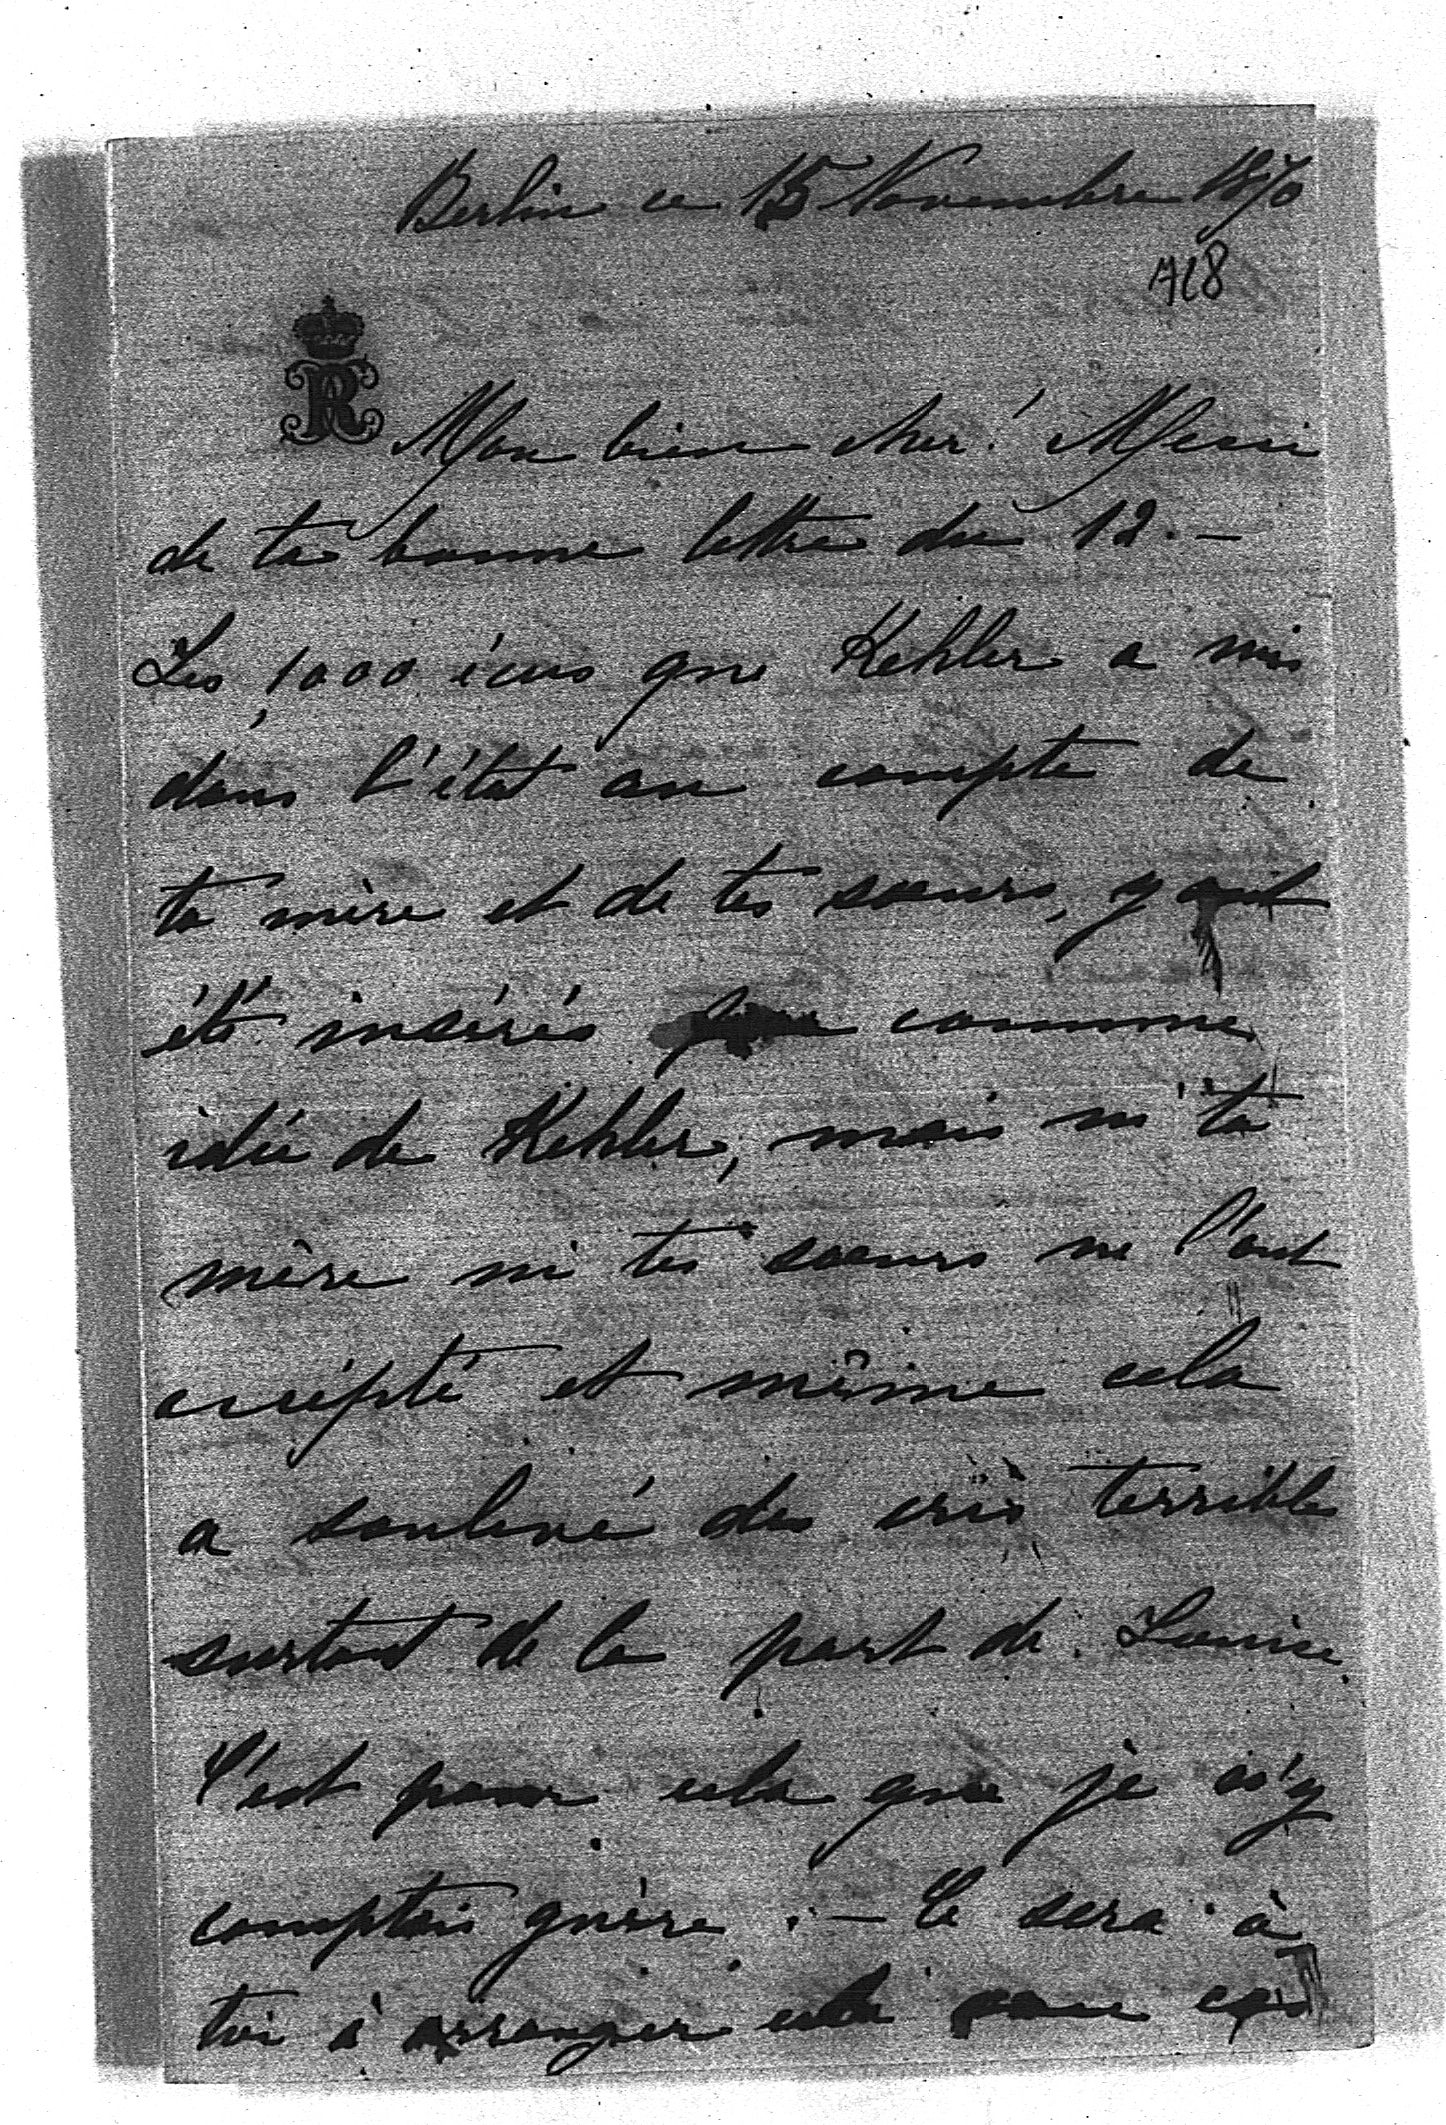 Berlin ce 15 Novembre 1870
R
Mon bien cher! Merci
de ta bonne lettre du 12. —
Les 1000 écus que Kehler a mis
dans l'état au compte de
ta mère et de tes soeurs, y ont
été insérés comme
idée de Kehler, mais ni ta
mère ni tes soeurs ne l'ont
accépté et même cela
a soulevé des cris terribles
surtout de la part de Louise.
C'est pour cela que je n'y
comptais guère. — Ce sera à
toi à arranger cela